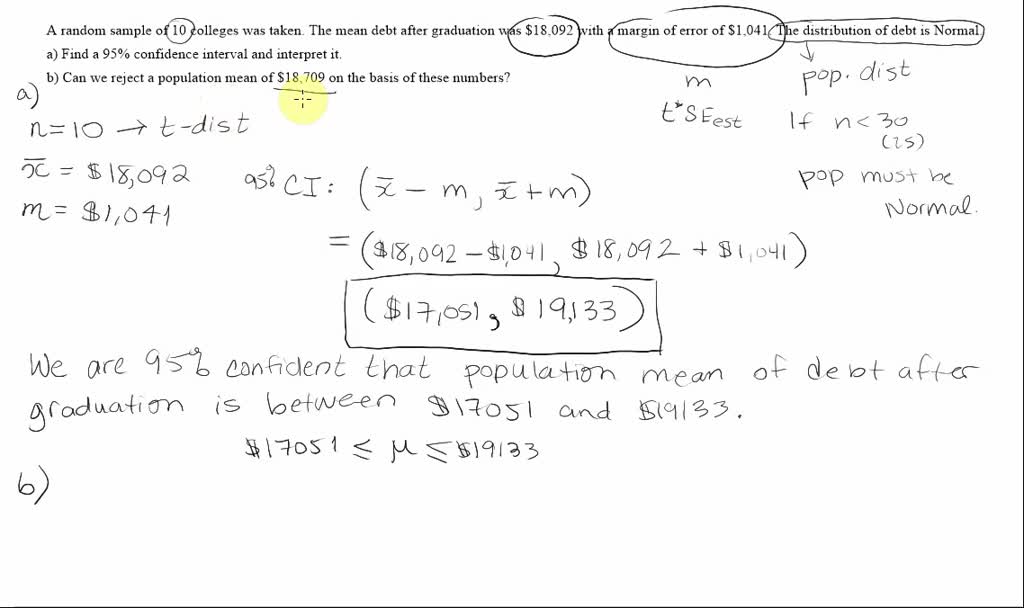 A random sample of 10 colleges was taken. The mean debt after graduation was $18,092 with a margin of error of $1,041. The distribution of debt is Normal.
a) Find a 95% confidence interval and interpret it.
b) Can we reject a population mean of $18,709 on the basis of these numbers?
a)
n=10 → t-dist
x̄ = $18,092
m = $1,041
m
t*SEest
pop. dist
If n<30
(25)
pop must be
Normal.
95% CI: (x̄ - m, x̄+m)
= ($18,092 - $1,041, $18,092 + $1,041)
($17,051, $19,133)
We are 95% confident that population mean of debt after
graduation is between $17051 and $19133.
$17051 ≤ μ ≤ $19133
b)